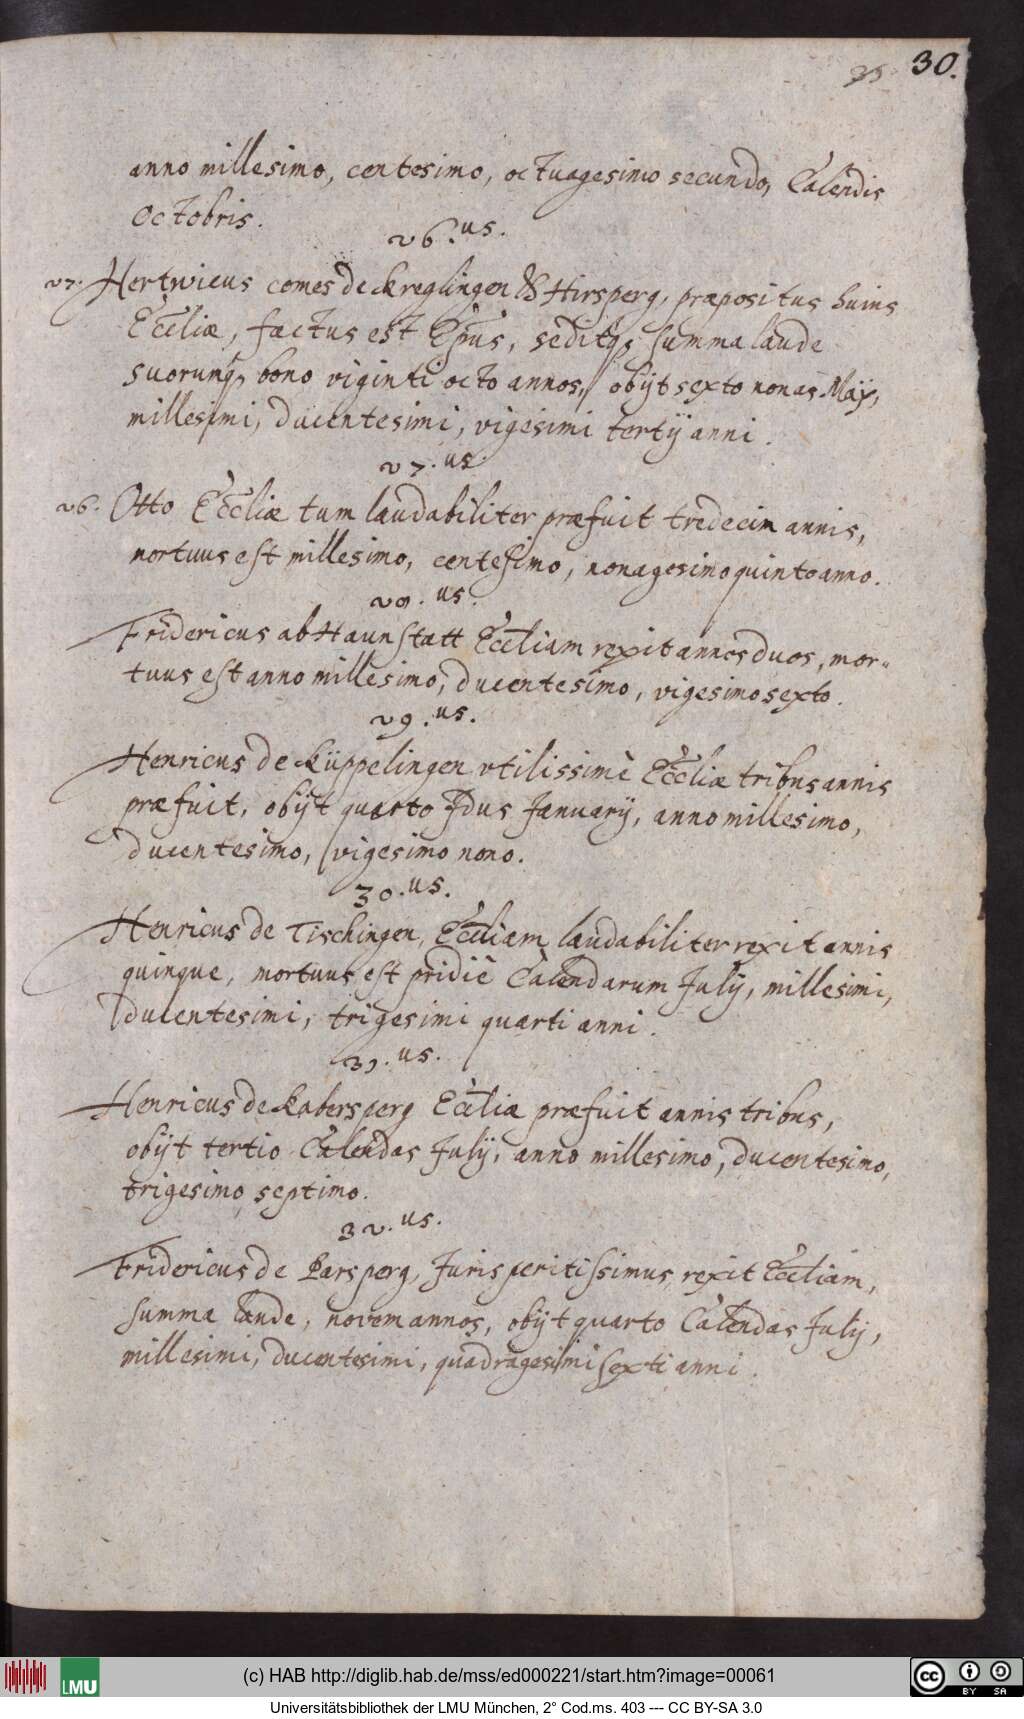 35 30.
anno millesimo, centesimo, octuagesimo secundo, Calendis
Octobris.
26.us.
27. Hertwicus comes de Kreglingen & Hirsperg, præpositus huius
Eccliæ, factus est Epus, seditq; summa laude
suorumq; bono viginti octo annos, obijt sexto nonas Maij,
millesimi, ducentesimi, vigesimi tertij anni.
27.us.
26. Otto Eccliæ tum laudabiliter præfuit tredecim annis,
mortuus est millesimo, centesimo, nonagesimo quinto anno.
28.us.
Fridericus ab Haunstatt Eccliam rexit annos duos, mor-
tuus est anno millesimo, ducentesimo, vigesimo sexto.
29.us.
Henricus de Züppelingen vtilissimè Eccliæ tribus annis
præfuit, obijt quarto Idus Januarij, anno millesimo,
ducentesimo, vigesimo nono.
30.us.
Henricus de Tischingen, Eccliam laudabiliter rexit annis
quinque, mortuus est pridiè Calendarum Julij, millesimi,
ducentesimi, trigesimi quarti anni.
31.us.
Henricus de Rabersperg Eccliæ præfuit annis tribus,
obijt tertio Calendas Julij, anno millesimo, ducentesimo,
trigesimo septimo.
32.us.
Fridericus de Parsperg, Juris peritissimus, rexit Eccliam,
summa laude, novem annos, obijt quarto Calendas Julij,
millesimi, ducentesimi, quadragesimi sexti anni.
LMU
(c) HAB http://diglib.hab.de/mss/ed000221/start.htm?image=00061
cc BY SA
Universitätsbibliothek der LMU München, 2° Cod.ms. 403 --- CC BY-SA 3.0